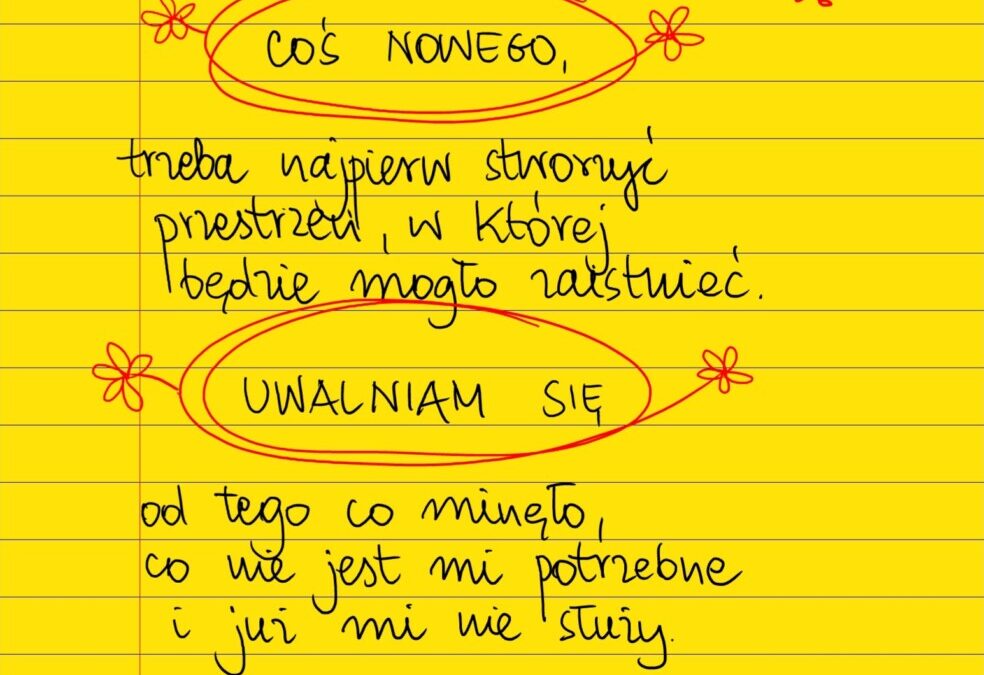 COŚ NOWEGO,
trzeba najpierw stworzyć
przestrzeń, w której
będzie mogło zaistnieć.
UWALNIAM SIĘ
od tego co minęło,
co nie jest mi potrzebne
i już mi nie służy.